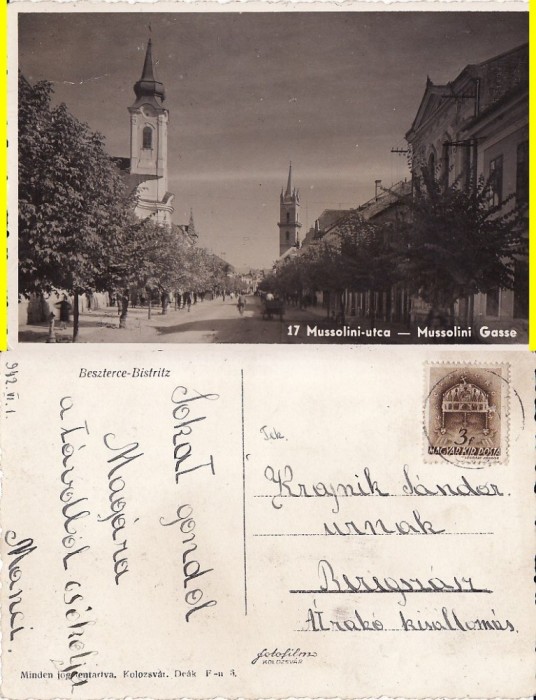 17 Mussolini-utca — Mussolini Gasse
Beszterce-Bistritz
942. VI. 1.
Sokat gondol
Magára
a távolból csókolja
Manci.
3f
MAGYAR KIR POSTA
Tek.
Krajnik Sándor
urnak
Beregszász
Átrakó kisállomás.
fotofilm
KOLOZSVÁR
Minden jog fentartva. Kolozsvár. Deák F-u 3.